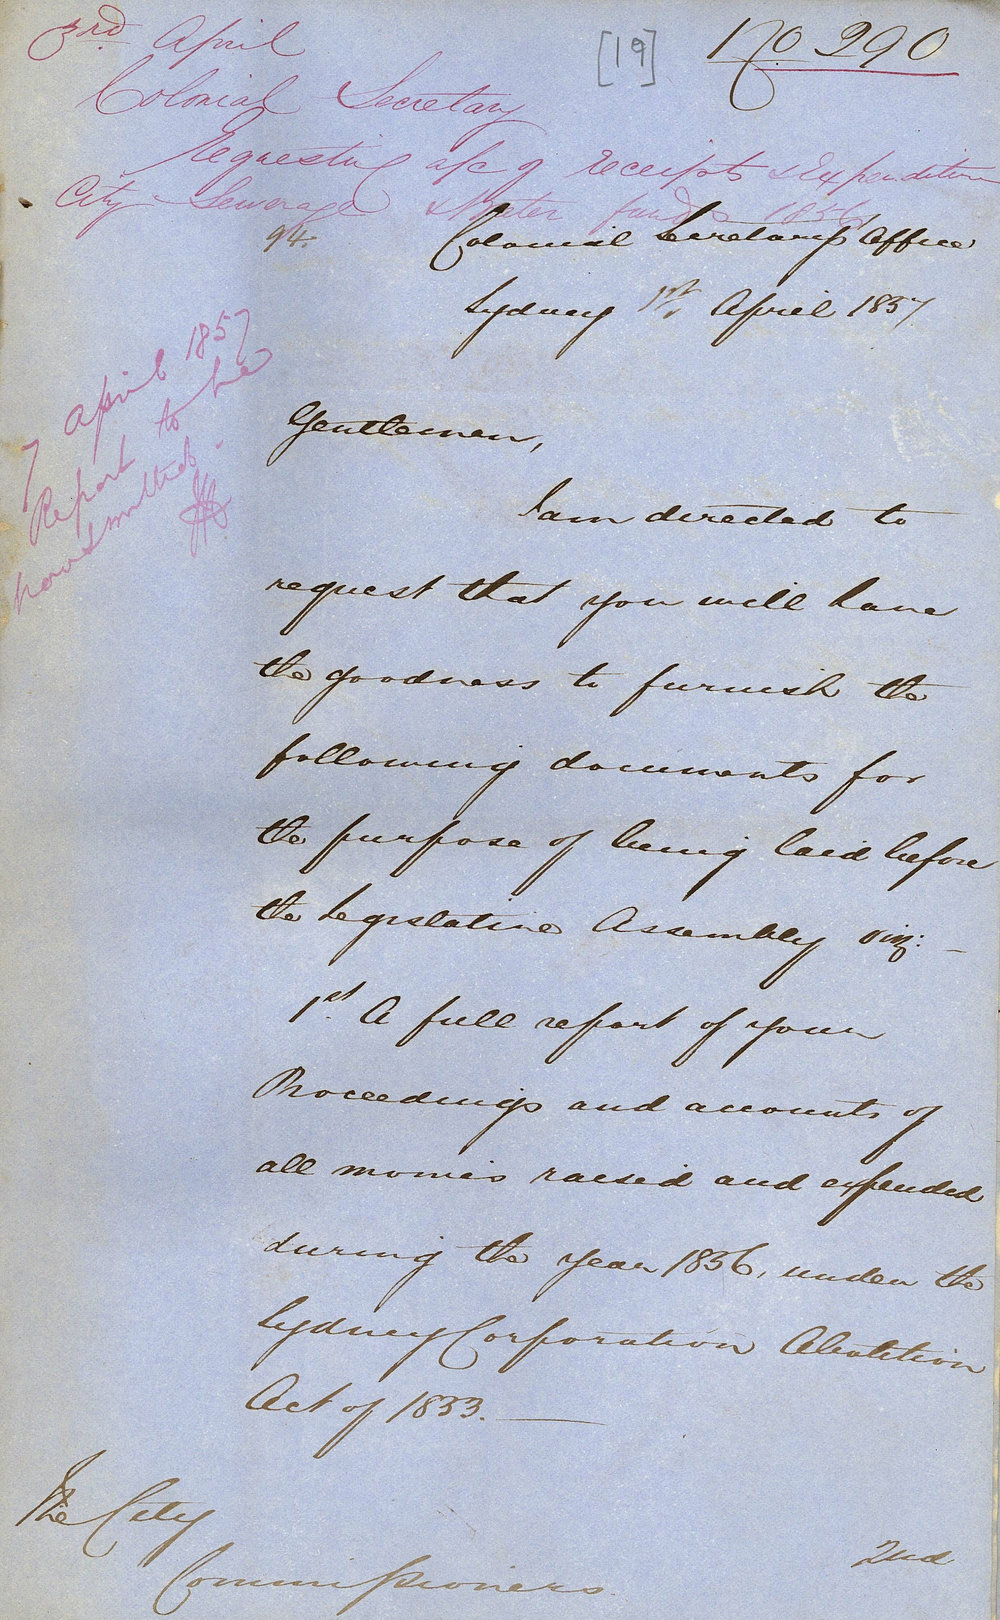 3rd April
[19]
No 290
Colonial Secretary
Requesting a/c of receipts & Expenditure
City Sewerage & Water funds 1856
94.
Colonial Secretarys Office
Sydney 1st April 1857
7 April 1857
Report to be
now submitted.
Gentlemen,
I am directed to
request that you will have
the goodness to furnish the
following documents for
the purpose of being laid before
the Legislative Assembly viz: —
1st A full report of your
Proceedings and accounts of
all monies raised and expended
during the year 1856, under the
Sydney Corporation Abolition
Act of 1853. —
The City
Commissioners
2nd